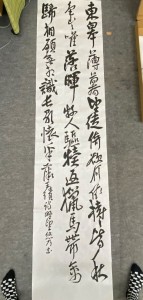 東皋薄暮望徙倚欲何依樹〻皆秋
色山〻唯落暉牧人驅犢返獵馬帶禽
歸相顧無相識長歌懷采薇績詩野望